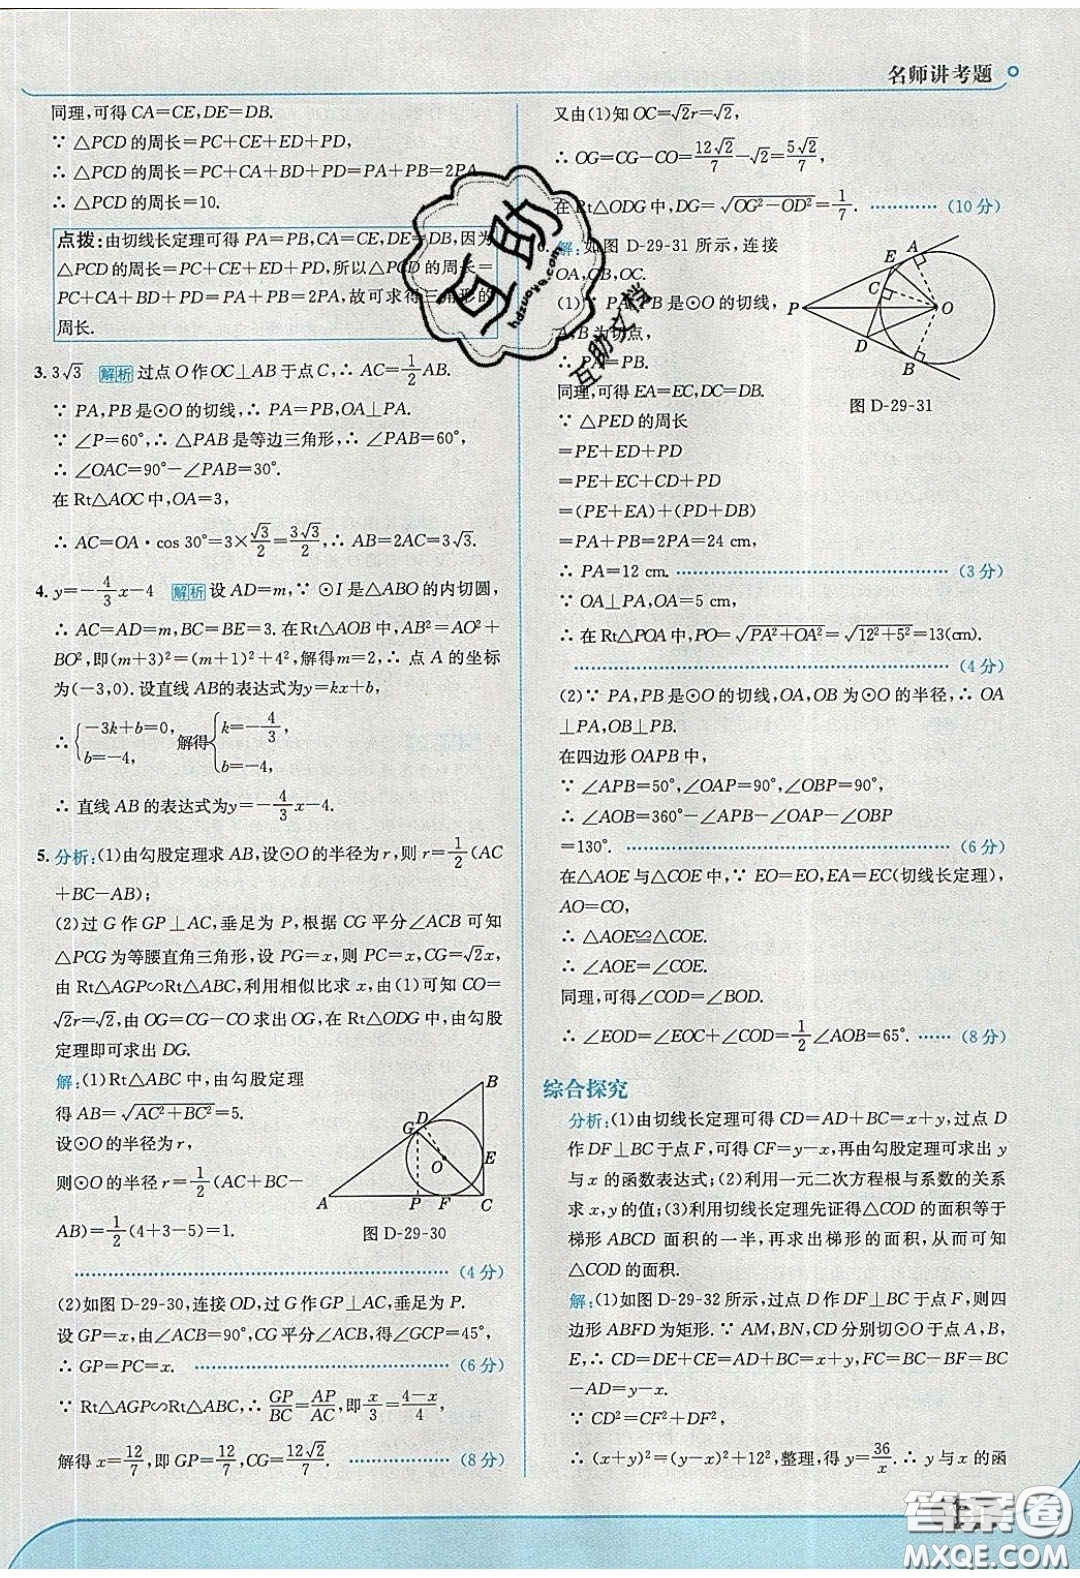 名师讲考题
同理,可得 CA=CE,DE=DB.
∵ △PCD 的周长=PC+CE+ED+PD,
∴ △PCD 的周长=PC+CA+BD+PD=PA+PB=2PA,
∴ △PCD 的周长=10.
点拨:由切线长定理可得 PA=PB,CA=CE,DE=DB,因为
△PCD 的周长=PC+CE+ED+PD,所以△PCD 的周长=
PC+CA+BD+PD=PA+PB=2PA,故可求得三角形的
周长.
3. 3√3 解析 过点 O 作 OC⊥AB 于点 C,∴ AC=1/2 AB.
∵ PA,PB 是⊙O 的切线,∴ PA=PB,OA⊥PA.
∵ ∠P=60°,∴ △PAB 是等边三角形,∴ ∠PAB=60°,
∴ ∠OAC=90°-∠PAB=30°.
在 Rt△AOC 中,OA=3,
∴ AC=OA·cos 30°=3×√3/2=3√3/2,∴ AB=2AC=3√3.
4. y=-4/3 x-4 解析 设 AD=m,∵ ⊙I 是△ABO 的内切圆,
∴ AC=AD=m,BC=BE=3. 在 Rt△AOB 中,AB²=AO²+
BO²,即(m+3)²=(m+1)²+4²,解得 m=2,∴ 点 A 的坐标
为(-3,0). 设直线 AB的表达式为y=kx+b,
∴ {-3k+b=0, b=-4, 解得 {k=-4/3, b=-4,
∴ 直线 AB 的表达式为y=-4/3 x-4.
5. 分析:(1)由勾股定理求 AB,设⊙O 的半径为 r,则 r=1/2(AC
+BC-AB);
(2)过 G 作 GP⊥AC,垂足为 P,根据 CG 平分∠ACB 可知
△PCG 为等腰直角三角形,设 PG=x,则 PC=x,CG=√2x,
由 Rt△AGP∽Rt△ABC,利用相似比求 x,由(1)可知 CO=
√2r=√2,由 OG=CG-CO 求出 OG,在 Rt△ODG 中,由勾股
定理即可求出 DG.
解:(1)Rt△ABC 中,由勾股定理
得 AB=√(AC²+BC²)=5.
设⊙O 的半径为 r,
则⊙O 的半径 r=1/2(AC+BC-
AB)=1/2(4+3-5)=1.
B
D
G
O
E
A
P
F
C
图 D-29-30
(4 分)
(2)如图 D-29-30,连接 OD,过 G 作 GP⊥AC,垂足为 P.
设 GP=x,由∠ACB=90°,CG 平分∠ACB,得∠GCP=45°,
∴ GP=PC=x. (6 分)
∵ Rt△AGP∽Rt△ABC,∴ GP/BC=AP/AC,即 x/3=(4-x)/4,
解得 x=12/7,即 GP=12/7,CG=12√2/7. (8 分)
又由(1)知 OC=√2r=√2,
∴ OG=CG-CO=12√2/7-√2=5√2/7,
在 Rt△ODG 中,DG=√(OG²-OD²)=1/7. (10 分)
6. 解:如图 D-29-31 所示,连接
OA,OB,OC.
(1)∵ PA,PB 是⊙O 的切线,
A,B 为切点,
∴ PA=PB.
同理,可得 EA=EC,DC=DB.
P
E
A
C
O
D
B
图 D-29-31
∵ △PED 的周长
=PE+ED+PD
=PE+EC+CD+PD
=(PE+EA)+(PD+DB)
=PA+PB=2PA=24 cm,
∴ PA=12 cm. (3 分)
∵ OA⊥PA,OA=5 cm,
∴ 在 Rt△POA 中,PO=√(PA²+OA²)=√(12²+5²)=13(cm).
(4 分)
(2)∵ PA,PB 是⊙O 的切线,OA,OB 为⊙O 的半径,∴ OA
⊥PA,OB⊥PB.
在四边形 OAPB 中,
∵ ∠APB=50°,∠OAP=90°,∠OBP=90°,
∴ ∠AOB=360°-∠APB-∠OAP-∠OBP
=130°. (6 分)
在△AOE 与△COE 中,∵ EO=EO,EA=EC(切线长定理),
AO=CO,
∴ △AOE≌△COE.
∴ ∠AOE=∠COE.
同理,可得∠COD=∠BOD.
∴ ∠EOD=∠EOC+∠COD=1/2∠AOB=65°. (8 分)
综合探究
分析:(1)由切线长定理可得 CD=AD+BC=x+y,过点 D
作 DF⊥BC 于点 F,可得 CF=y-x,再由勾股定理可求出 y
与 x 的函数表达式;(2)利用一元二次方程根与系数的关系
求 x,y 的值;(3)利用切线长定理先证得△COD 的面积等于
梯形 ABCD 面积的一半,再求出梯形的面积,从而可得
△COD 的面积.
解:(1)如图 D-29-32 所示,过点 D 作 DF⊥BC 于点 F,则四
边形 ABFD 为矩形.∵ AM,BN,CD 分别切⊙O 于点 A,B,
E,∴ CD=DE+CE=AD+BC=x+y,FC=BC-BF=BC
-AD=y-x.
∵ CD²=CF²+DF²,
∴ (x+y)²=(y-x)²+12²,整理,得 y=36/x.∴ y 与 x 的函
互助
hdzuoye.com
互助文档
答案圈
MXQE.COM